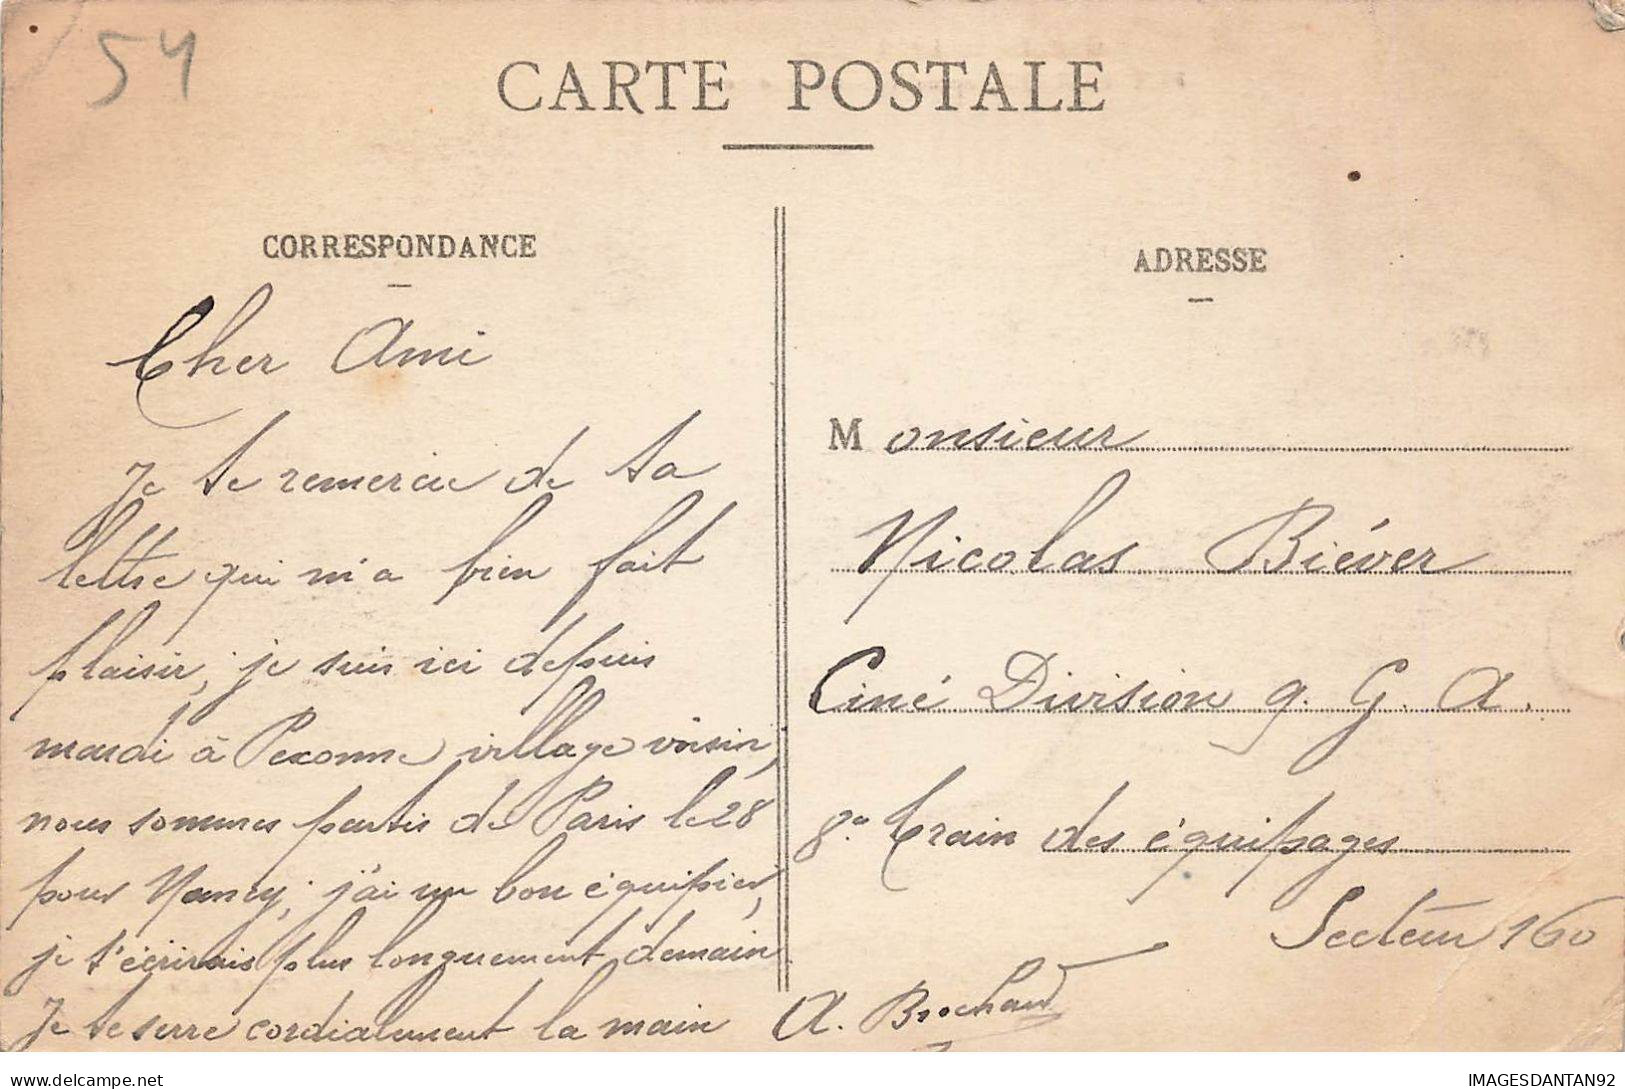 54
CARTE POSTALE
CORRESPONDANCE
Cher Ami
Je te remercie de ta
lettre qui m'a bien fait
plaisir, je suis ici depuis
mardi à Pexonne village voisin,
nous sommes partis de Paris le 28
pour Nancy, j'ai un bon équipier,
je t'écrirais plus longuement demain
Je te serre cordialement la main
A. Brochard
ADRESSE
Monsieur
Nicolas Biéver
Ciné Division g. G. A.
8e Train des équipages
Secteur 160
IMAGESDANTAN92